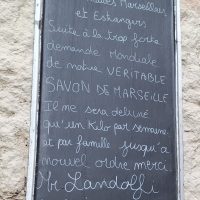 mades Marseillais
et Eshangers
Suite à la trop forte
demande Mondiale
de notre VERITABLE
SAVON DE MARSEILLE
Il ne sera délivré
qu'un Kilo par semaine
et par famille jusqu'à
nouvel ordre merci
Mr Landolfi